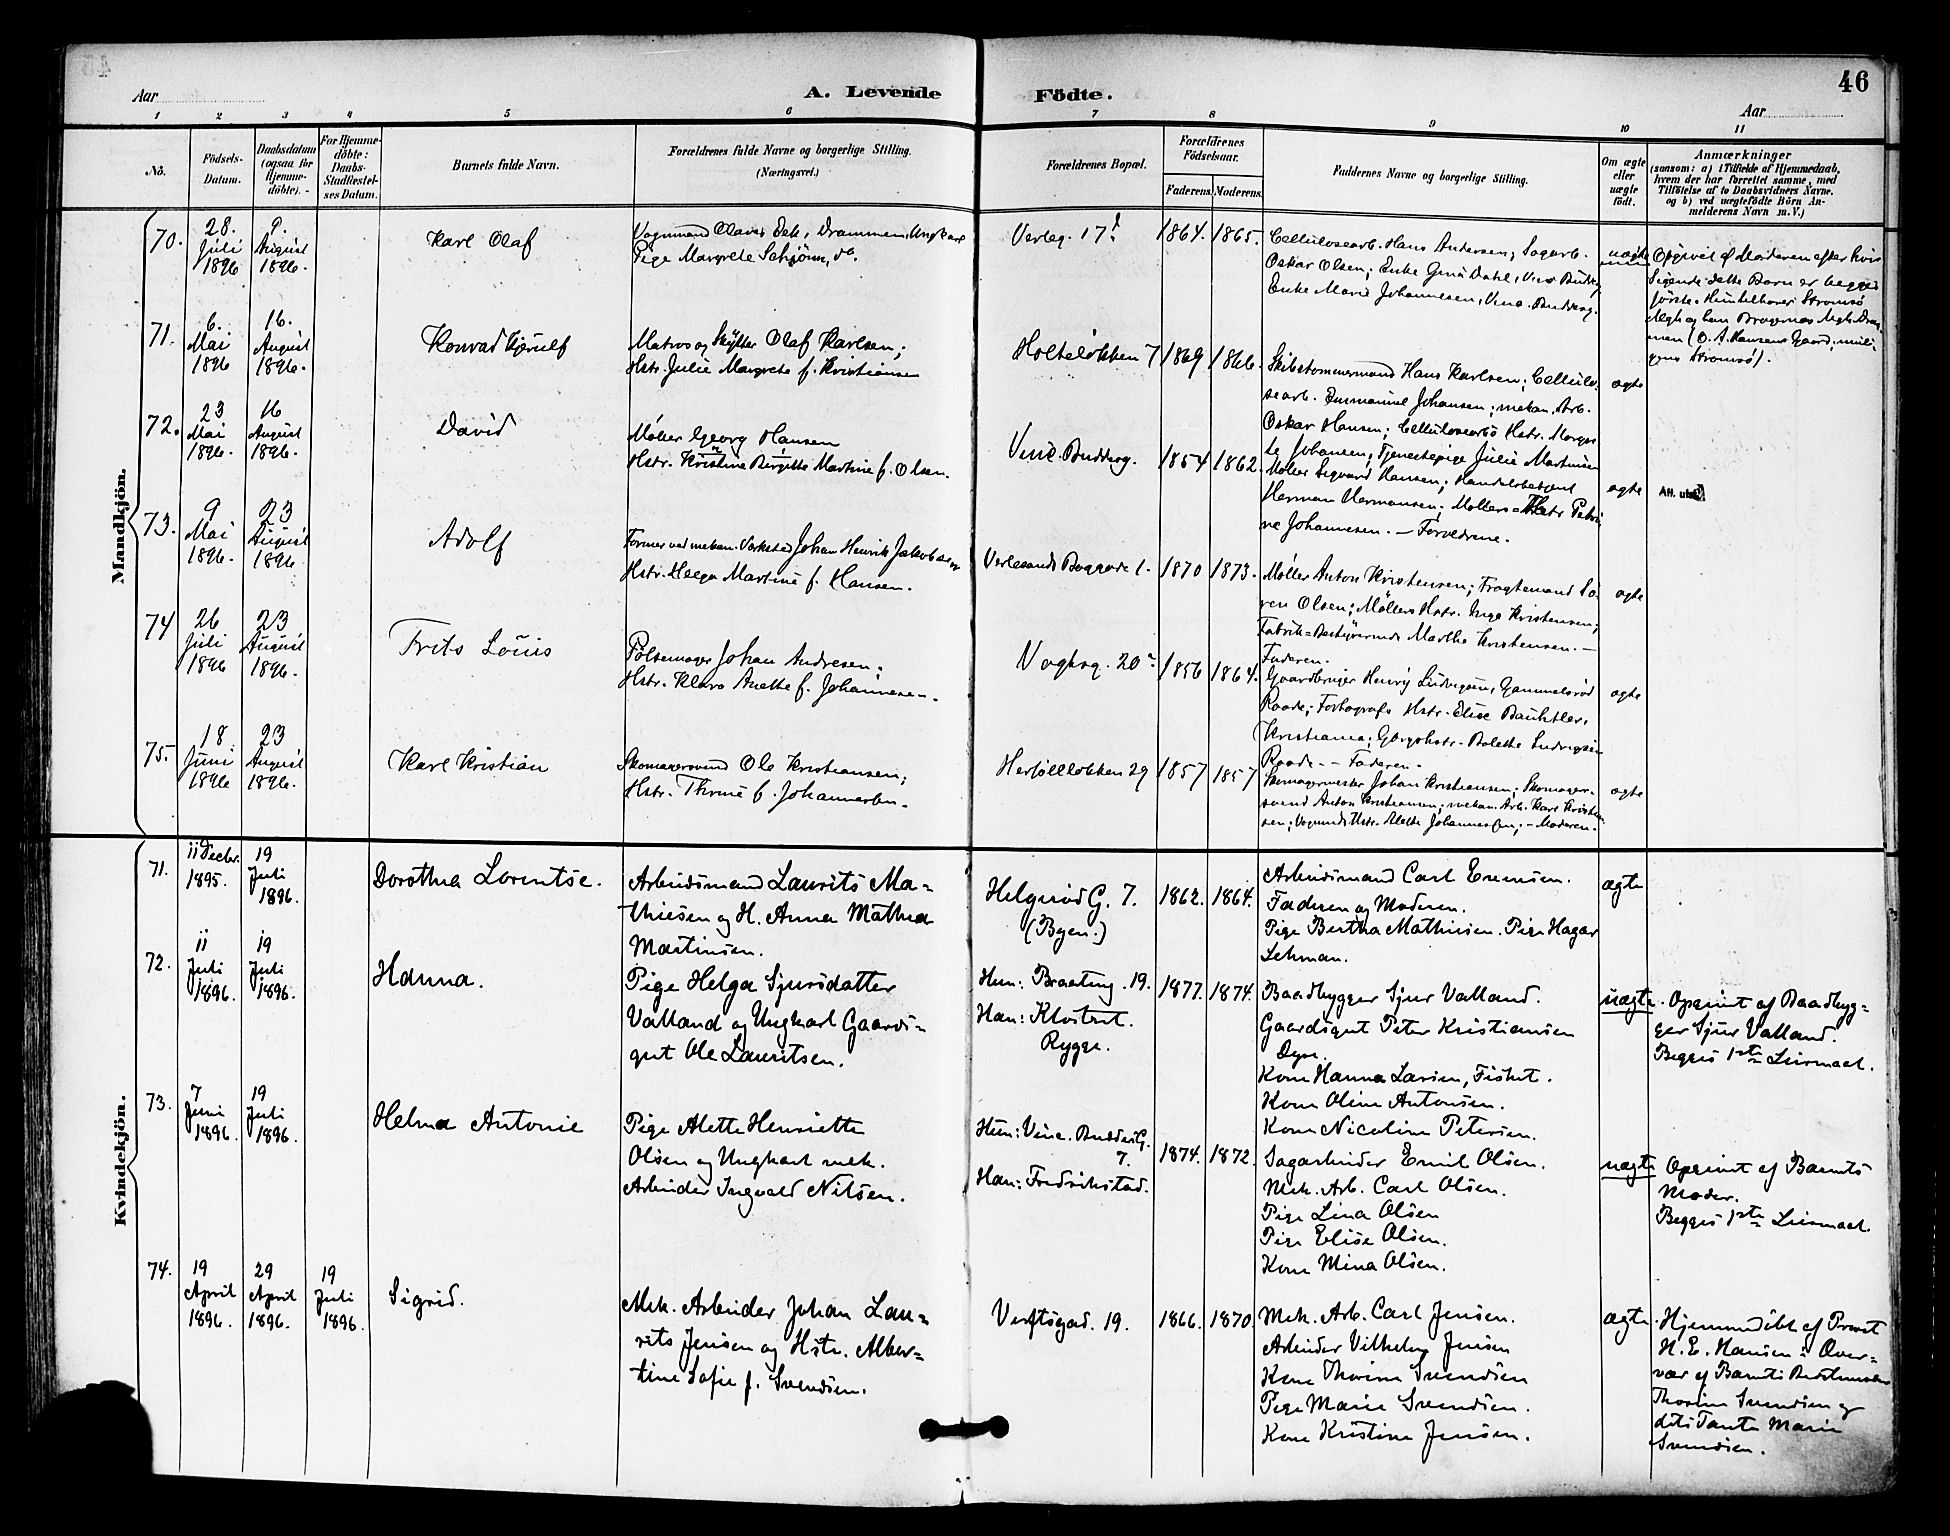 46
Aar
A. Levende Födte.
Aar
1 2 3 4 5 6 7 8 9 10 11
No.
Födsels-Datum.
Daabsdatum (ogsaa för Hjemme-döbte).
For Hjemme-döbte: Daabs-Stadfæstel-ses Datum.
Barnets fulde Navn.
Forældrenes fulde Navne og borgerlige Stilling.
(Næringsvei.)
Forældrenes Bopæl.
Forældrenes Födselsaar.
Faderens. Moderens.
Faddernes Navne og borgerlige Stilling.
Om ægte eller uægte födt.
Anmærkninger
(saasom: a) i Tilfælde af Hjemmedaab,
hvem der har forrettet samme, med
Tilföielse af to Daabsvidners Navne.
og b) ved uægtefödte Börn An-
melderens Navn m. V.)
Mandkjön.
70.
28. Juli 1896
9. August 1896.
Karl Olaf
Vognmand Olaves Eek, Drammen, Ungkarl
Pige Margrete Schjönn, do.
Verleg. 17
1864. 1865.
Cellulosearb. Hans Andersen; Sagarb.
Oskar Olsen; Enke Gina Dahl, Vinc. Buddeg.
Enke Marie Johannesen, Vinc. Buddeg.
uægte
Opgivet af Moderen efter hvis
Sigende dette Barn er begges
förste. Hun tilhører Strømsø
Mgh og han Bragernes Mgh. Dram-
men (O. A. Hansens Gaard,
Strømsø).
71.
6. Mai 1896
16. August 1896.
Konrad Kjerulf
Matros og Skytter Olaf Karlsen;
Hstr. Julie Margrete f. Kristiansen
Holteløkken 7
1869 1866.
Skibstømmermand Hans Karlsen; Cellulo-
searb. Emmanuel Johansen; mekan. Arb.
Oskar Hansen; Cellulosearbs Hstr. Margre-
te Johansen; Tjenestepige Julie Martinsen
ægte
72.
23 Mai 1896.
16 August 1896.
David
Møller Georg Hansen
Hstr. Kristine Birgitte Martine f. Olsen.
Vinc. Buddeg.
1854 1862.
Møller Sigvard Hansen; Handelsbetjent
Herman Hermansen; Møllers Hstr. Petri-
ne Johannesen. — Forældrene.
ægte
Att. utst.
73.
9 Mai 1896.
23 August 1896
Adolf
Former ved mekan. Værksted Johan Henrik Jakobsen
Hstr. Helga Martine f. Hansen.
Verlesands Baggade 1.
1870 1873.
Møller Anton Kristensen; Fragtemand Sö-
ren Olsen; Møllers Hstr. Inga Kristensen;
Fabrik=Bestyrerinde Marthe Kristensen. —
Faderen.
ægte
74
26 Juli 1896
23 August 1896.
Frits Louis
Pølsemager Johan Andresen.
Hstr. Klara Anette f. Johannesen.
Vogtsg. 20
1856 1864.
Gaardbruger Henrÿ Ludvigsen, Gammelsrød
Raade; Fotografs Hstr. Elise Bauhtler,
Kristiania; Gbrgshstr. Bolette Ludvigsen
Raade - - Faderen.
ægte
75.
18 Juni 1896
23 August 1896.
Karl Kristian
Skomagersvend Ole Kristiansen;
Hstr. Thrine f. Johannesen.
Herföllløkken 29
1857 1857
Skomagermester Johan Kristiansen; Skomager-
svend Anton Kristiansen; mekan. Arb. Karl Kristian-
sen; Vognmds Hstr. Alette Johannesen; — Moderen.
ægte
Kvindekjön.
71.
11 Decbr. 1895.
19 Juli 1896.
Dorothea Lorentse.
Arbeidsmand Laurits Ma-
thiesen og H. Anna Mathea
Martinsen.
Helgerød G. 7.
(Byen.)
1862. 1864.
Arbeidsmand Carl Evensen.
Faderen og Moderen.
Pige Bertha Mathisen. Pige Hagar
Lehman.
ægte
72.
11 Juli 1896.
19 Juli 1896.
Hanna.
Pige Helga Sjursdatter
Valland og Ungkarl Gaards-
gut Ole Lauritsen.
Hun: Braateng. 19.
Han: Klostret.
Rygge.
1877. 1874.
Baadbygger Sjur Valland.
Gaardsgut Peter Kristiansen
Dyre.
Kone Hanna Larsen, Fiskst.
Kone Oline Antonsen.
Kone Nicoline Petersen.
uægte.
Opgivet af Baadbyg-
ger Sjur Valland.
Begges 1ste Leiermaal.
73.
7 Juni 1896.
19 Juli 1896.
Helma Antonie
Pige Alette Henriette
Olsen og Ungkarl mek.
Arbeider Ingvald Nilsen.
Hun: Vinc. Buddes G. 7.
Han: Fredrikstad.
1874. 1872.
Sagarbeider Emil Olsen.
Mek. Arb. Carl Olsen.
Pige Lina Olsen
Pige Elise Olsen.
Kone Mina Olsen.
uægte
Opgivet af Barnets
Moder.
Begges 1ste Leiermaal.
74.
19 April 1896.
29 April 1896.
19 Juli 1896.
Sigrid.
Mek. Arbeider Johan Lau-
rits Jensen og Hstr. Alber-
tine Sofie f. Svendsen.
Verftsgad. 19.
1866. 1870
Mek. Arb. Carl Jensen.
Arbeider Vilhelm Jensen
Kone Thorine Svendsen
Pige Marie Svendsen.
Kone Kristine Jensen.
ægte.
Hjemmedöbt af Provst
H. E. Hansen i Over-
vær af Barnets Bedstemoder
Thorine Svendsen og
dets Tante Marie
Svendsen.